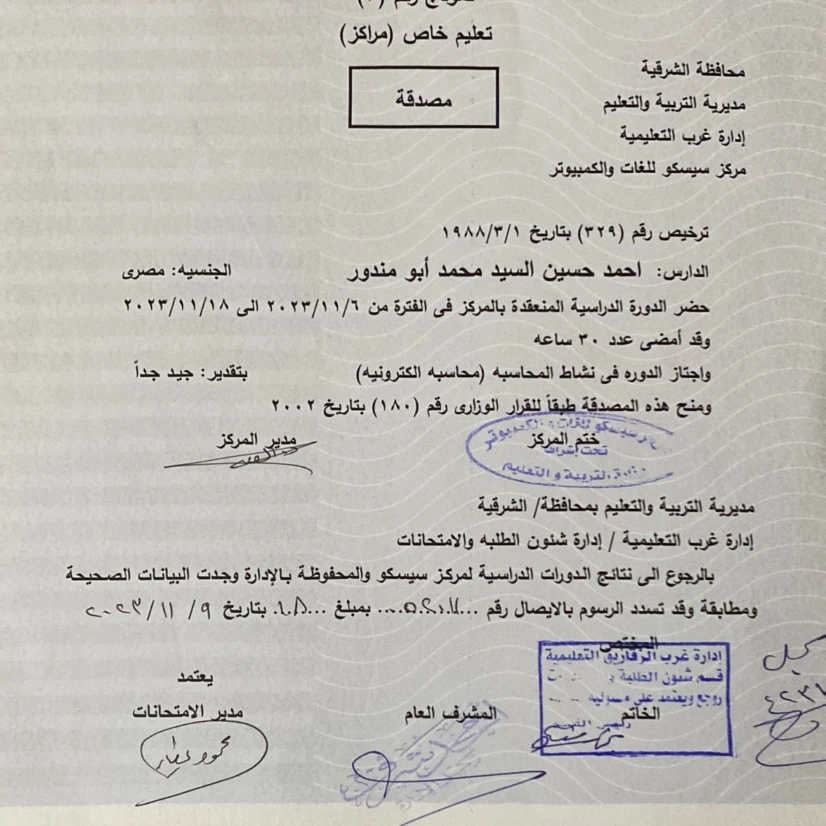 تعليم خاص (مراكز)
مصدقة
محافظة الشرقية
مديرية التربية والتعليم
إدارة غرب التعليمية
مركز سيسكو للغات والكمبيوتر
ترخيص رقم (٣٢٩) بتاريخ ١٩٨٨/٣/١
الدارس: احمد حسين السيد محمد أبو مندور الجنسية: مصرى
حضر الدورة الدراسية المنعقدة بالمركز فى الفترة من ٢٠٢٣/١١/٦ الى ٢٠٢٣/١١/١٨
وقد أمضى عدد ٣٠ ساعه
واجتاز الدوره فى نشاط المحاسبه (محاسبه الكترونيه) بتقدير: جيد جداً
ومنح هذه المصدقة طبقاً للقرار الوزارى رقم (١٨٠) بتاريخ ٢٠٠٢
ختم المركز مدير المركز
سيسكو للغات والكمبيوتر
تحت إشراف
التربية والتعليم
مديرية التربية والتعليم بمحافظة/ الشرقية
إدارة غرب التعليمية / إدارة شئون الطلبه والامتحانات
بالرجوع الى نتائج الدورات الدراسية لمركز سيسكو والمحفوظة بالإدارة وجدت البيانات الصحيحة
ومطابقة وقد تسدد الرسوم بالايصال رقم بمبلغ بتاريخ ٩/ ١١/ ٢٠٢٣
المختص
إدارة غرب الزقازيق التعليمية
قسم شئون الطلبة
روجع ويعتمد على مسئولية
الخاتم المشرف العام
يعتمد
مدير الامتحانات